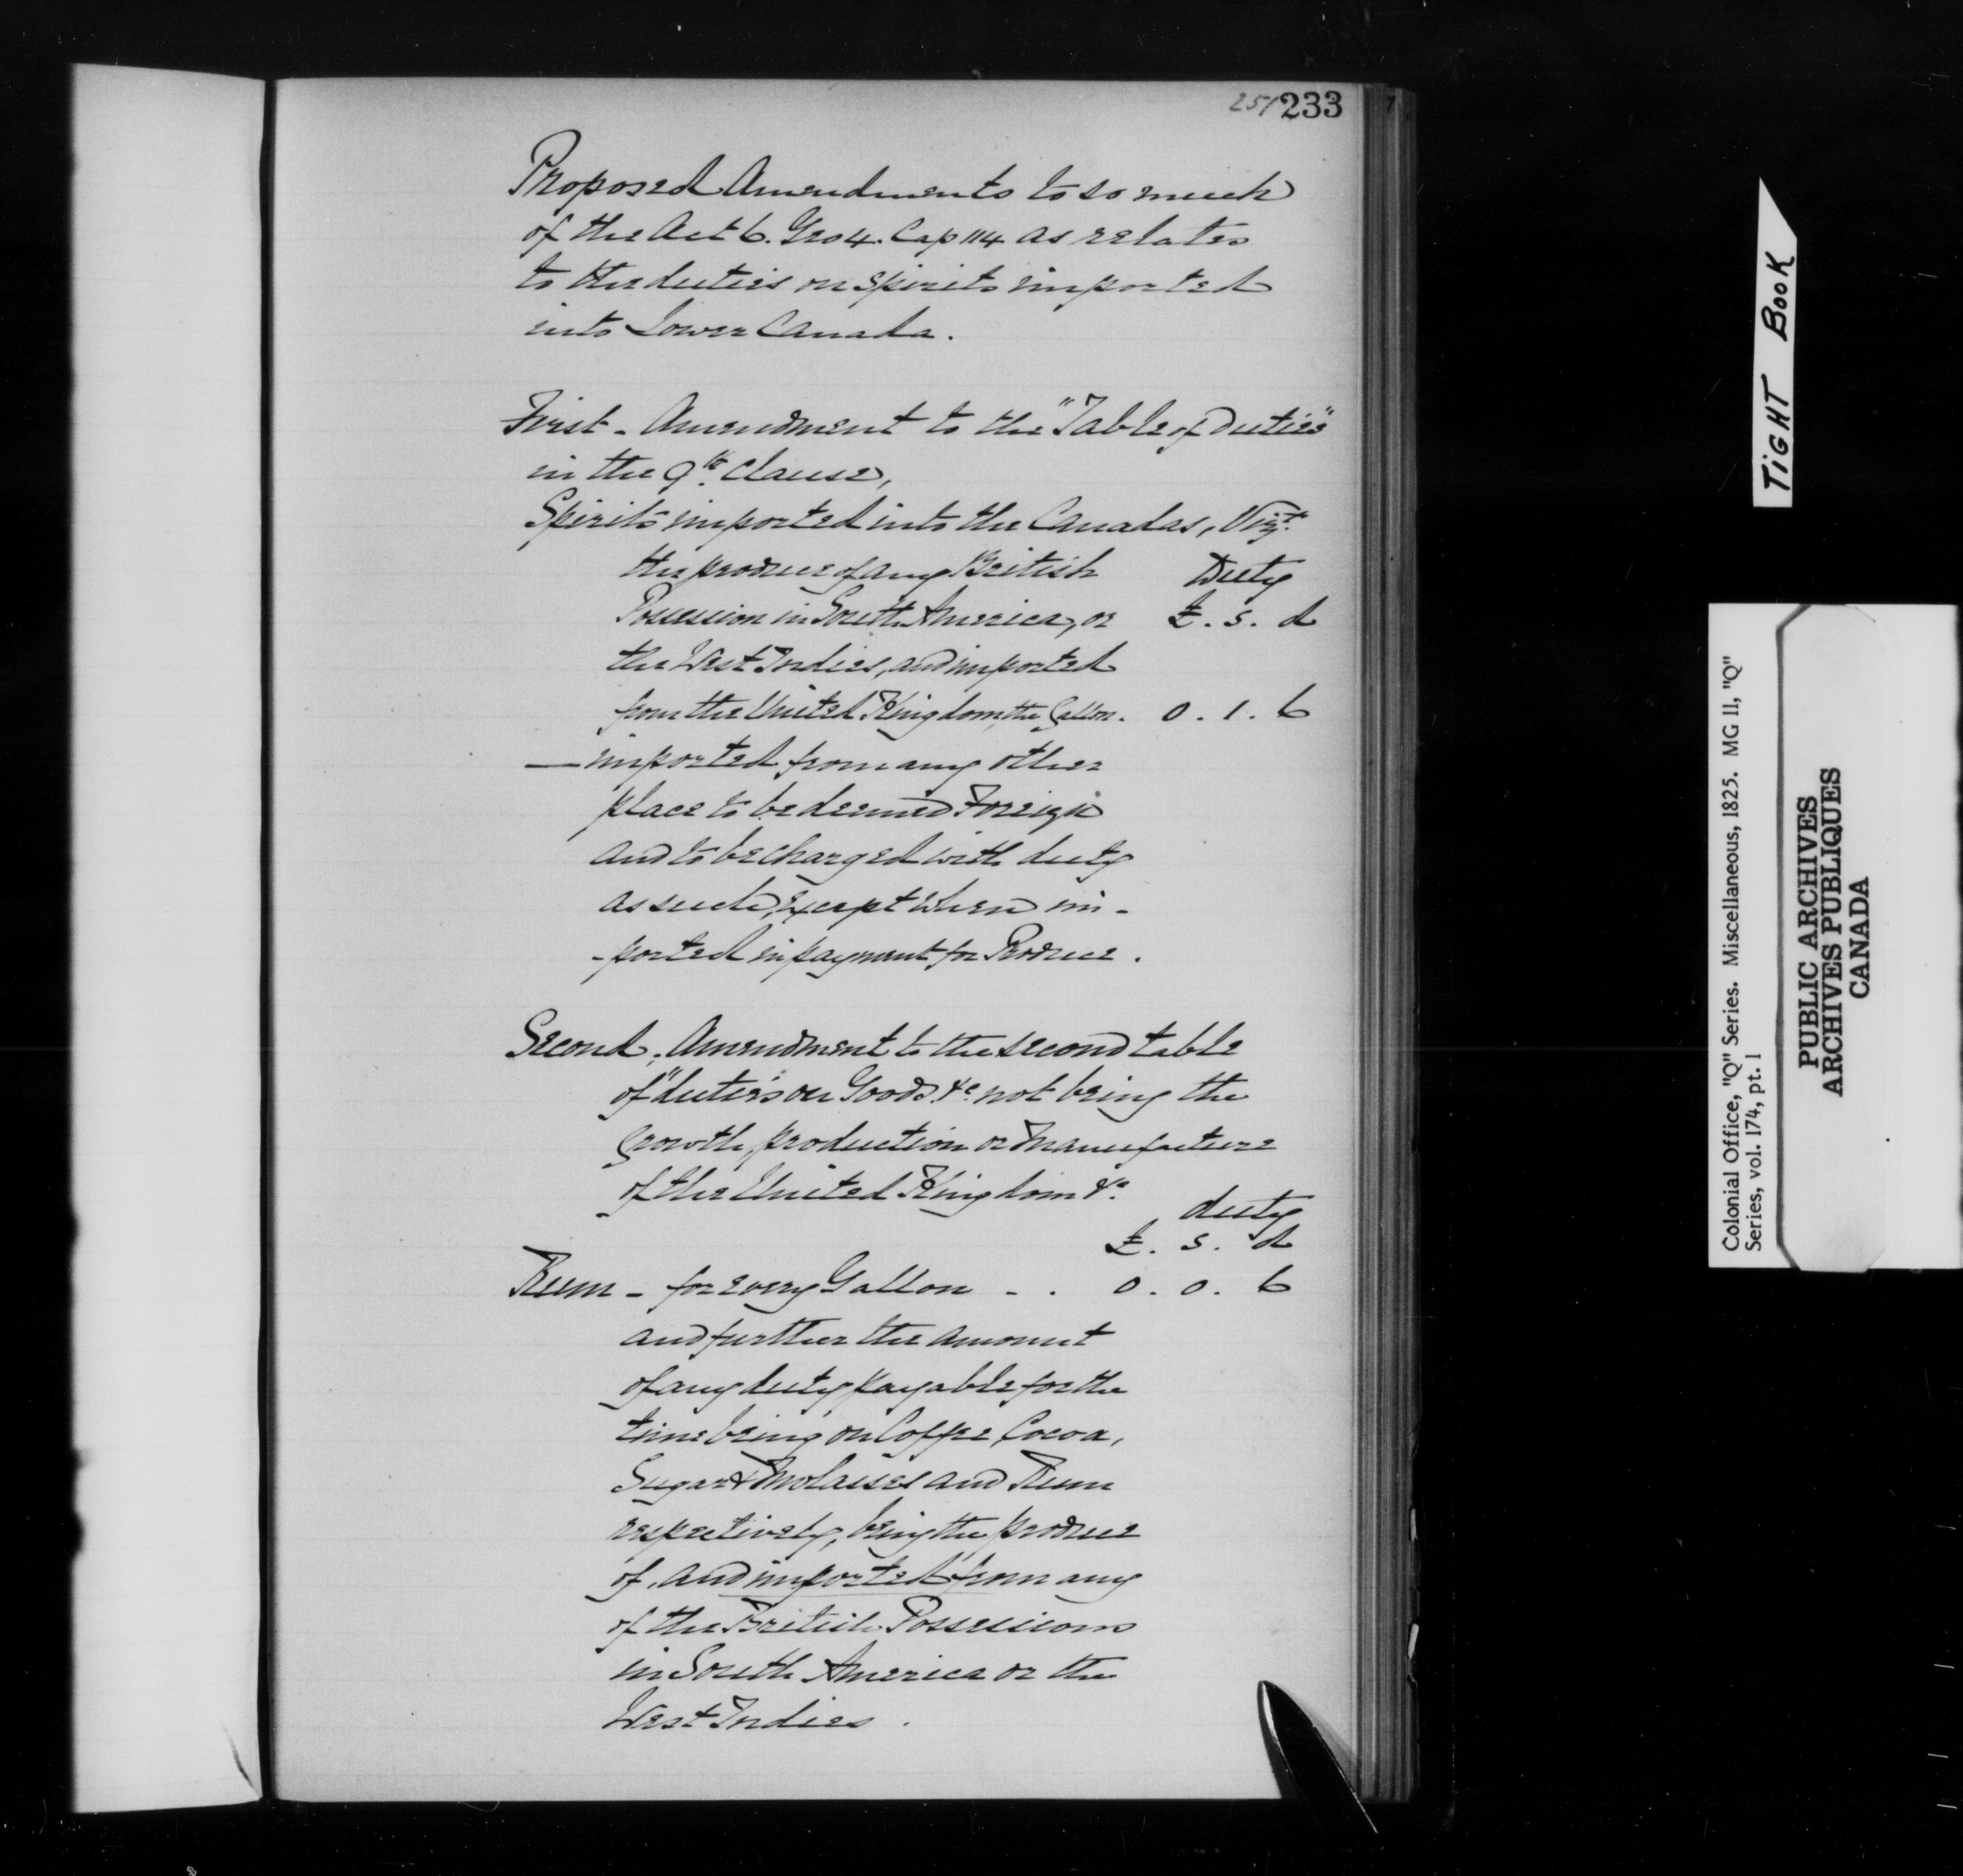 251 233
Proposed Amendments to so much
of the Act 6. Geo 4. Cap 114 as relates
to the duties on spirits imported
into Lower Canada.
First - Amendment to the "Table of Duties"
in the 9th. Clause,
Spirits imported into the Canadas, Vizt.
the produce of any British
Duty
Possession in South America, or £. s. d
the West Indies, and imported
from the United Kingdom, the Gallon. 0. 1. 6
— imported from any other
place to be deemed Foreign
and to be charged with duty
as such, except when im-
-ported in payment for Produce.
Second, Amendment to the second table
of "duties on Goods &c. not being the
Growth, production or manufacture
of the United Kingdom &c.
duty
£. s. d
Rum - for every Gallon - . 0. 0. 6
and further the amount
of any duty payable for the
time being on Coffee, Cocoa,
Sugar & Molasses and Rum
respectively, being the produce
of, and imported from any
of the British Possessions
in South America or the
West Indies.
TIGHT BOOK
Colonial Office, "Q" Series. Miscellaneous, 1825. MG 11, "Q"
Series, vol. 174, pt. 1
PUBLIC ARCHIVES
ARCHIVES PUBLIQUES
CANADA